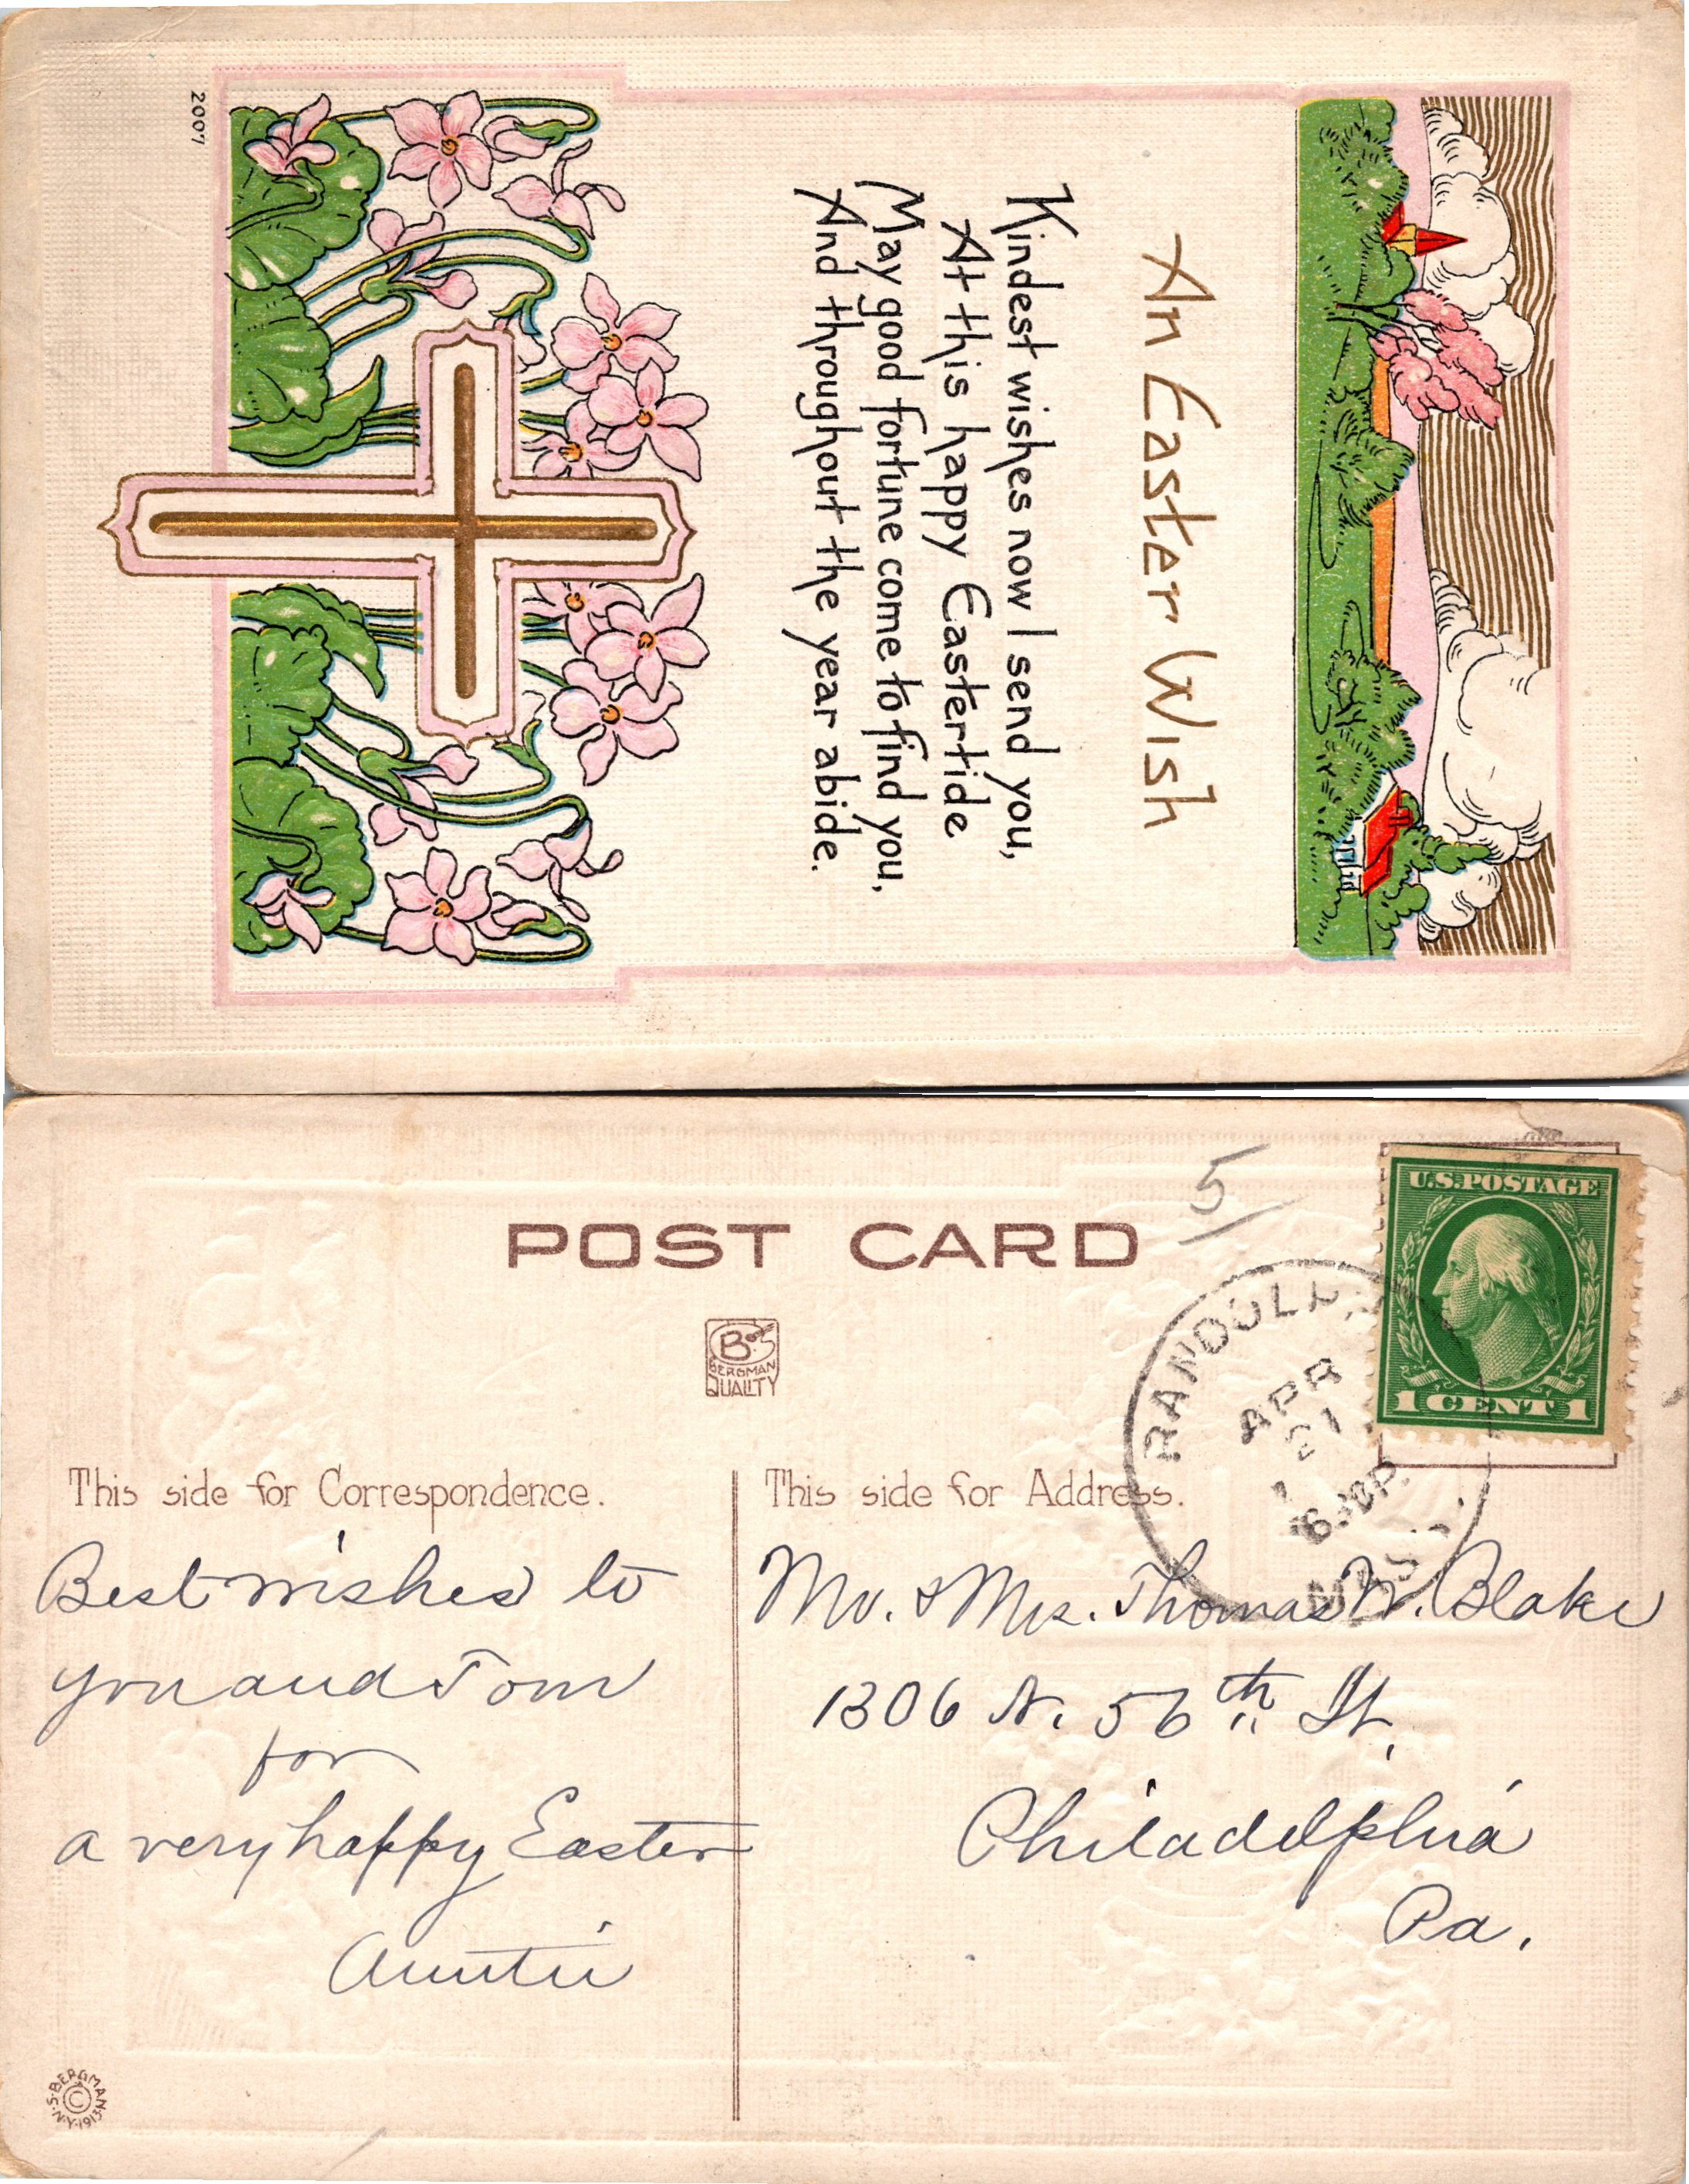 An Easter Wish
Kindest wishes now I send you,
At this happy Eastertide
May good fortune come to find you,
And throughout the year abide.
2007
POST CARD
5
U.S. POSTAGE
1 CENT 1
RANDOLPH
APR
21
630P
MASS.
B
BERGMAN
QUALITY
This side for Correspondence.
Best wishes to
you and Tom
for
a very happy Easter
Auntie
This side for Address.
Mr. & Mrs. Thomas W. Blake
1306 N. 56th St.
Philadelphia
Pa.
S. BERGMAN N.Y. 1913
©